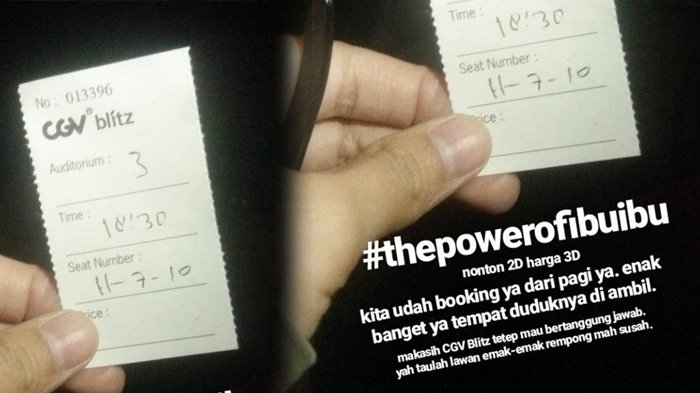 No : 013396
CGV blitz
Auditorium : 3
Time : 18:30
Seat Number :
H-7-10
Time : 18:30
Seat Number :
H-7-10
#thepowerofibuibu
nonton 2D harga 3D
kita udah booking ya dari pagi ya. enak
banget ya tempat duduknya di ambil.
makasih CGV Blitz tetep mau bertanggung jawab.
yah taulah lawan emak-emak rempong mah susah.